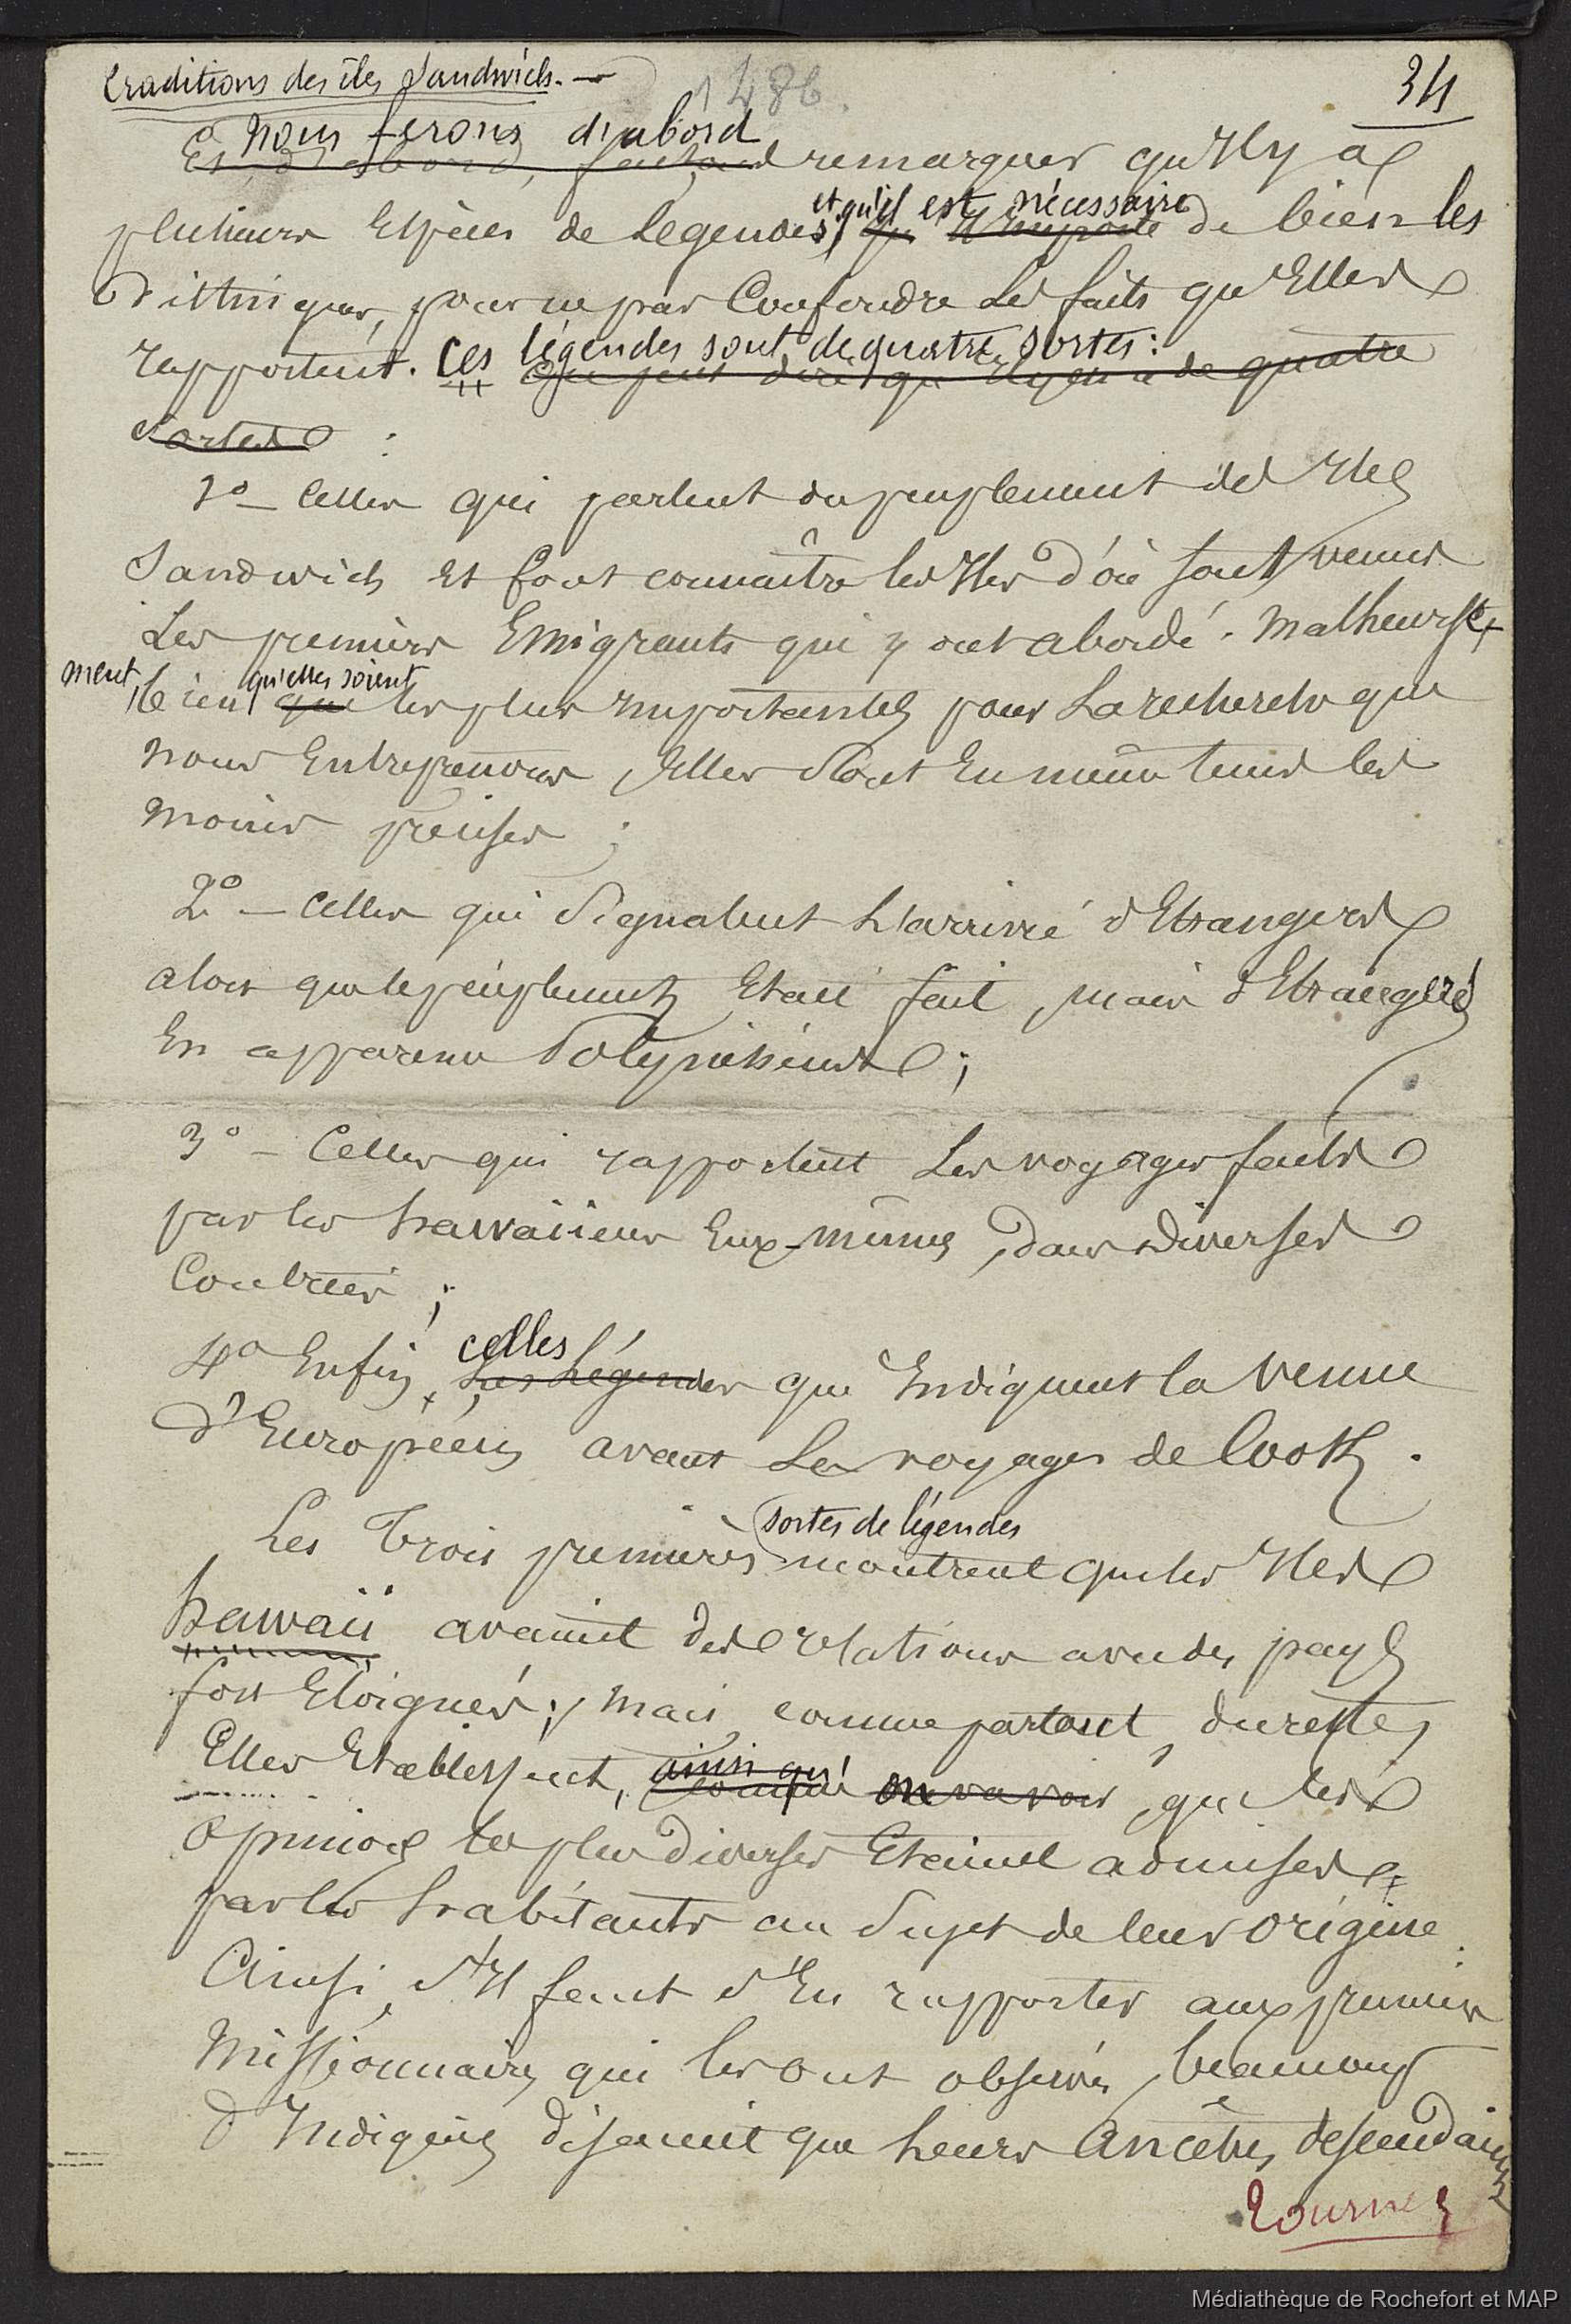 Traditions des îles Sandwich. —
1486.
34
nous ferons d'abord
Et, d'abord, remarquer qu'Il y a
et qu'il est nécessaire
plusieurs Espèces de Légendes, qu' Il importe de bien les
Distinguer, pour ne pas Confondre les faits qu'Elles
légendes sont de quatre sortes :
rapportent. Ces On peut dire qu'Il y en a de quatre
Sortes :
1º — Celles qui parlent du peuplement des Iles
Sandwich et font connaître les Iles d'où sont venus
Les premiers Emigrants qui y ont abordé. Malheureuse
qu'elles soient
ment, bien que les plus importantes pour La recherche que
nous Entreprenons, Elles sont En même temps les
moins précises ;
2º — Celles qui Signalent L'arrivée d'Etrangers
alors que le peuplement Etait fait, mais d'Etrangers
En apparence Polynésiens ;
3º — Celles qui rapportent Les voyages faits
par les hawaiiens Eux-mêmes, dans diverses
Contrées ;
celles
4º Enfin, Les Légendes qui Indiquent la venue
d'Européens avant Les voyages de Cook.
sortes de légendes
Les Trois premières montrent que les Iles
hawaii avaient des relations avec des pays
fort Eloignés ; mais, comme partout, du reste,
ainsi qu'
Elles Etablissent, comme on va voir, que les
opinions les plus diverses Etaient admises
par les habitants au Sujet de leur origine.
Ainsi, S'Il faut s'En rapporter aux premiers
Missionnaires qui les ont observés, beaucoup
d'Indigènes disaient que Leurs Ancêtres descendaient
Tournez
Médiathèque de Rochefort et MAP